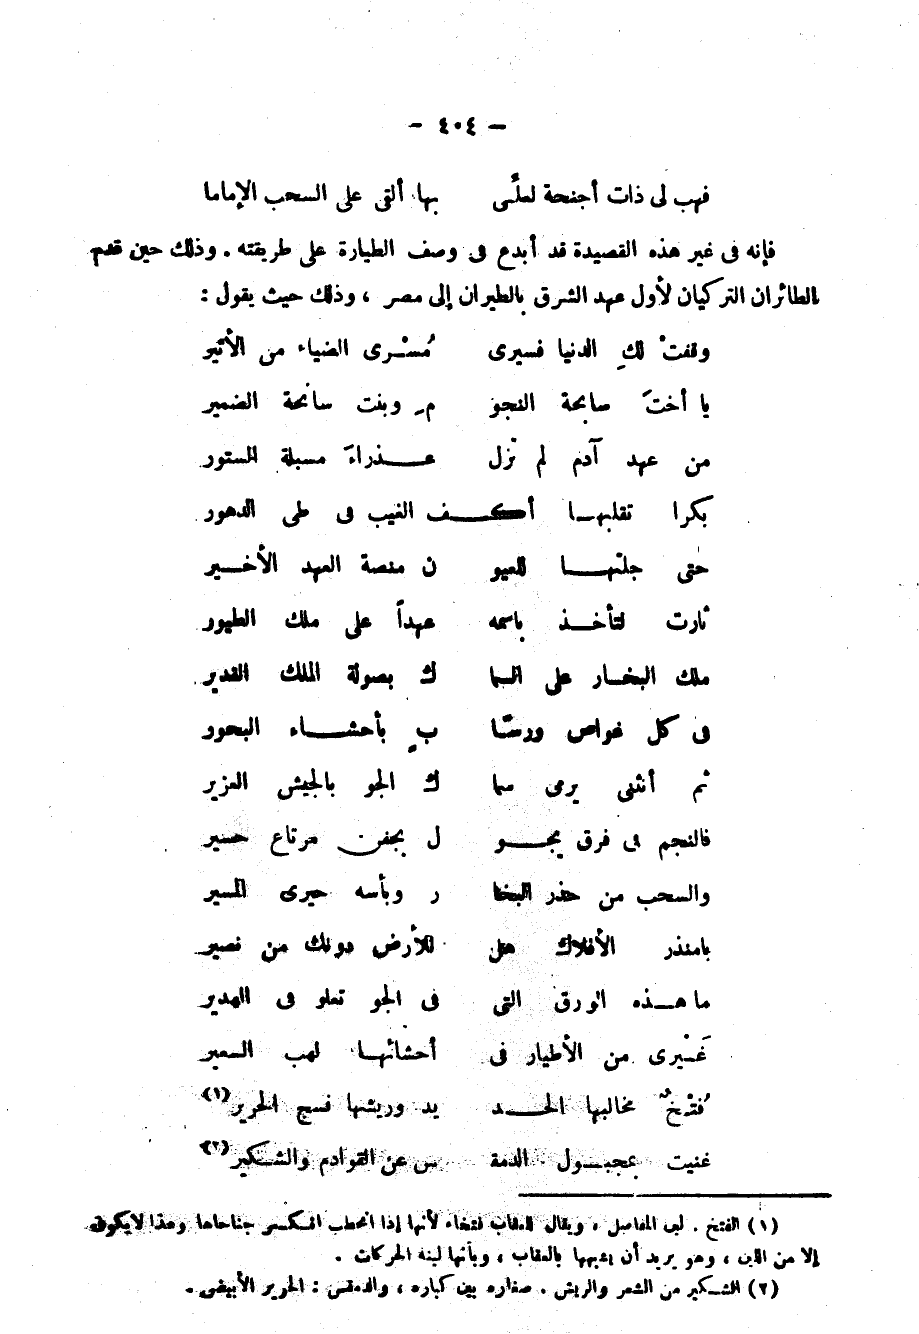 — ٤٠٤ —
فهب لى ذات أجنحة لعلّى بها ألقى على السحب الإماما
فإنه فى غير هذه القصيدة قد أبدع فى وصف الطيارة على طريقته . وذلك حين قدم
الطائران التركيان لأول عهد الشرق بالطيران إلى مصر ، وذلك حيث يقول :
وقفتْ لكِ الدنيا فسيرى مُسْرى الضياء من الأثير
يا أختَ سابحة النجو مِ وبنت سانحة الضمير
من عهد آدم لم تزَل عذراءَ مسبلة الستور
بكرا تقلبها أكف الغيب فى طى الدهور
حتى جلتها للعيو ن منصة العهد الأخير
ثارت لتأخذ باسمه عهداً على ملك الطيور
ملك البخار على السما ك بصولة الملك القدير
فى كل غواص ورسّا بٍ بأحشاء البحور
ثم أنثنى يرمى سما ك الجو بالجيش العزيز
فالنجم فى فرق يجو ل بجفن مرتاع حسير
والسحب من حذر البخا ر وبأسه حيرى المسير
يامنذر الأفلاك هل للأرض دونك من نصير
ما هذه الورق التى فى الجو تعلو فى الهدير
غَيْرى من الأطيار فى أحشائها لهب السعير
فُتْخٌ مخالبها الحد يد وريشها نسج الحرير (١)
غنيت بمجبول الدمة س عن القوادم والشكير (٢)
(١) الفتخ . لين المفاصل ، ويقال للعقاب فتخاء لأنها إذا انحطت انكسر جناحاها وهذا لايكون
إلا من اللين ، وهو يريد أن يشبهها بالعقاب ، وبأنها لينة الحركات .
(٢) الشكير من الشعر والريش . صغاره بين كباره ، والدمقس : الحرير الأبيض .